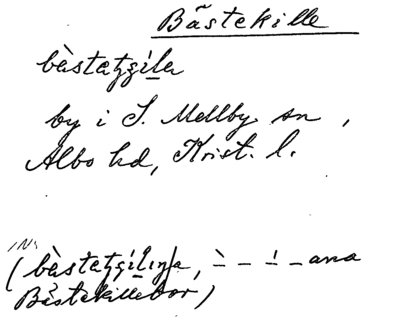 Båstekille
bàstaꞇgíla
by i S. Mellby sn,
Albo hd, Krist. l.
(bàstaꞇgílɪŋa, ` – ´ – ana
Båstekillebor)